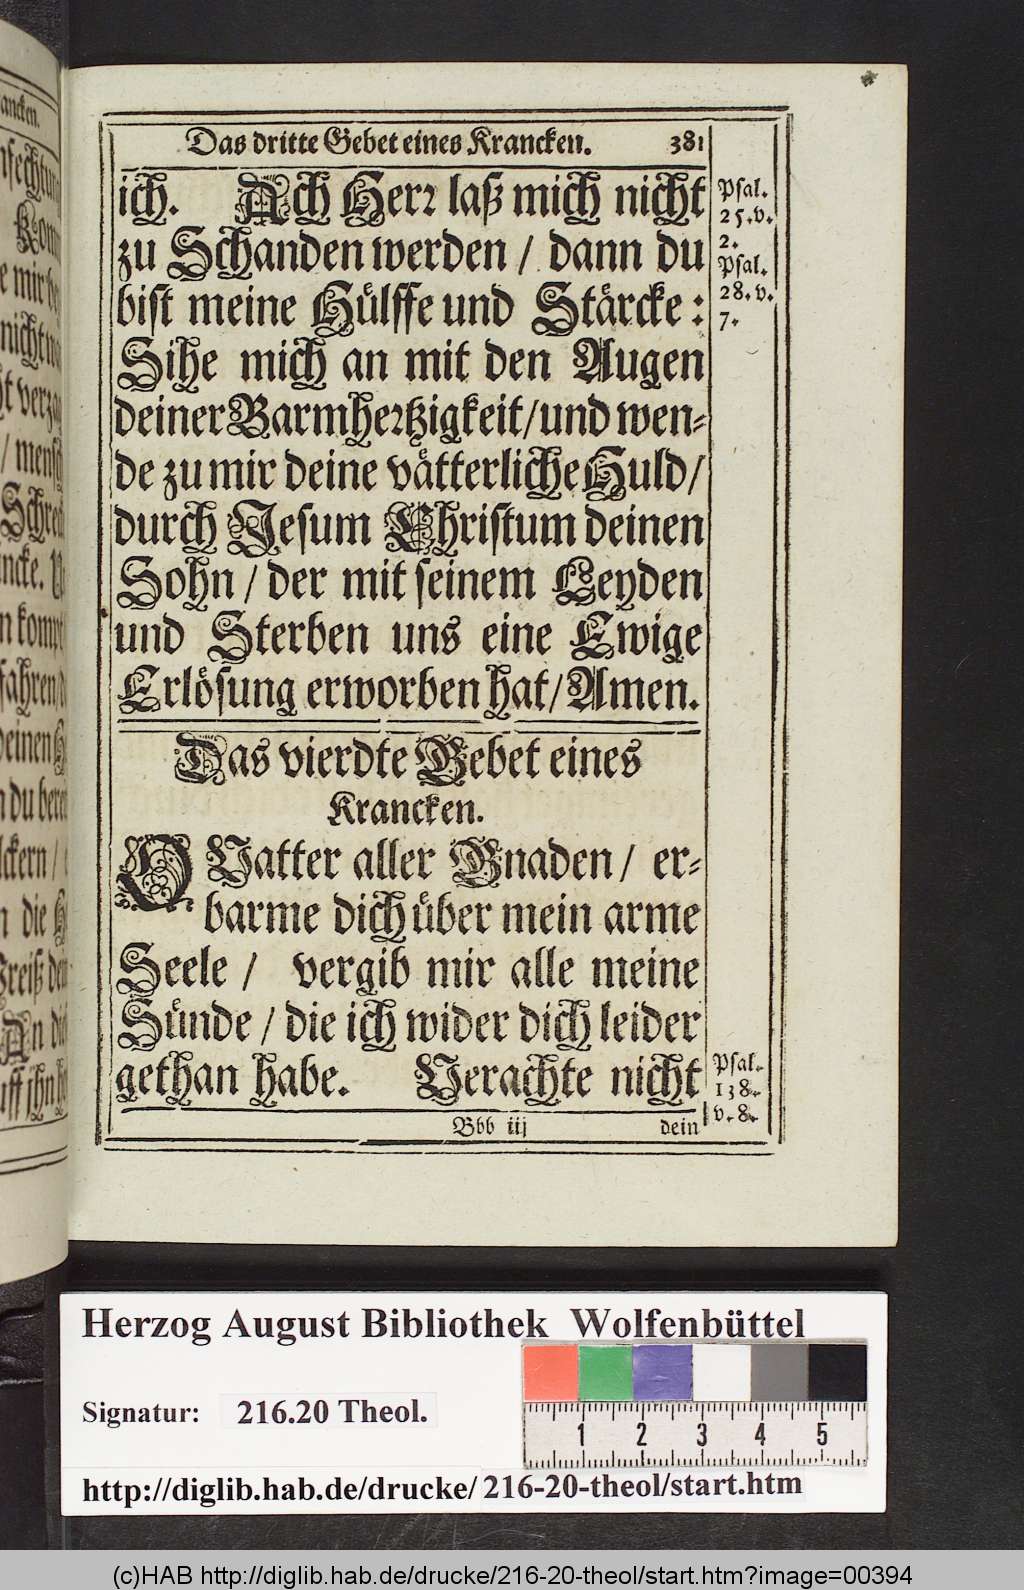 Das dritte Gebet eines Krancken. 381
ich. Ach Herr laß mich nicht
zu Schanden werden / dann du
bist meine Hülffe und Stärcke:
Sihe mich an mit den Augen
deiner Barmhertzigkeit/und wen-
de zu mir deine vätterliche Huld/
durch Jesum Christum deinen
Sohn / der mit seinem Leyden
und Sterben uns eine Ewige
Erlösung erworben hat/Amen.
Psal.
25. v.
2.
Psal.
28. v.
7.
Das vierdte Gebet eines
Krancken.
O Vatter aller Gnaden / er-
barme dich über mein arme
Seele / vergib mir alle meine
Sünde / die ich wider dich leider
gethan habe. Verachte nicht
Psal.
138.
v. 8.
Bbb iij dein
ancken.
nicht
/ mensch
ncke.
n komt
fahren/
deinen
n du berei
lckern /
n die
Preiß dein
An dich
Herzog August Bibliothek Wolfenbüttel
Signatur: 216.20 Theol.
1 2 3 4 5
http://diglib.hab.de/drucke/216-20-theol/start.htm
(c)HAB http://diglib.hab.de/drucke/216-20-theol/start.htm?image=00394